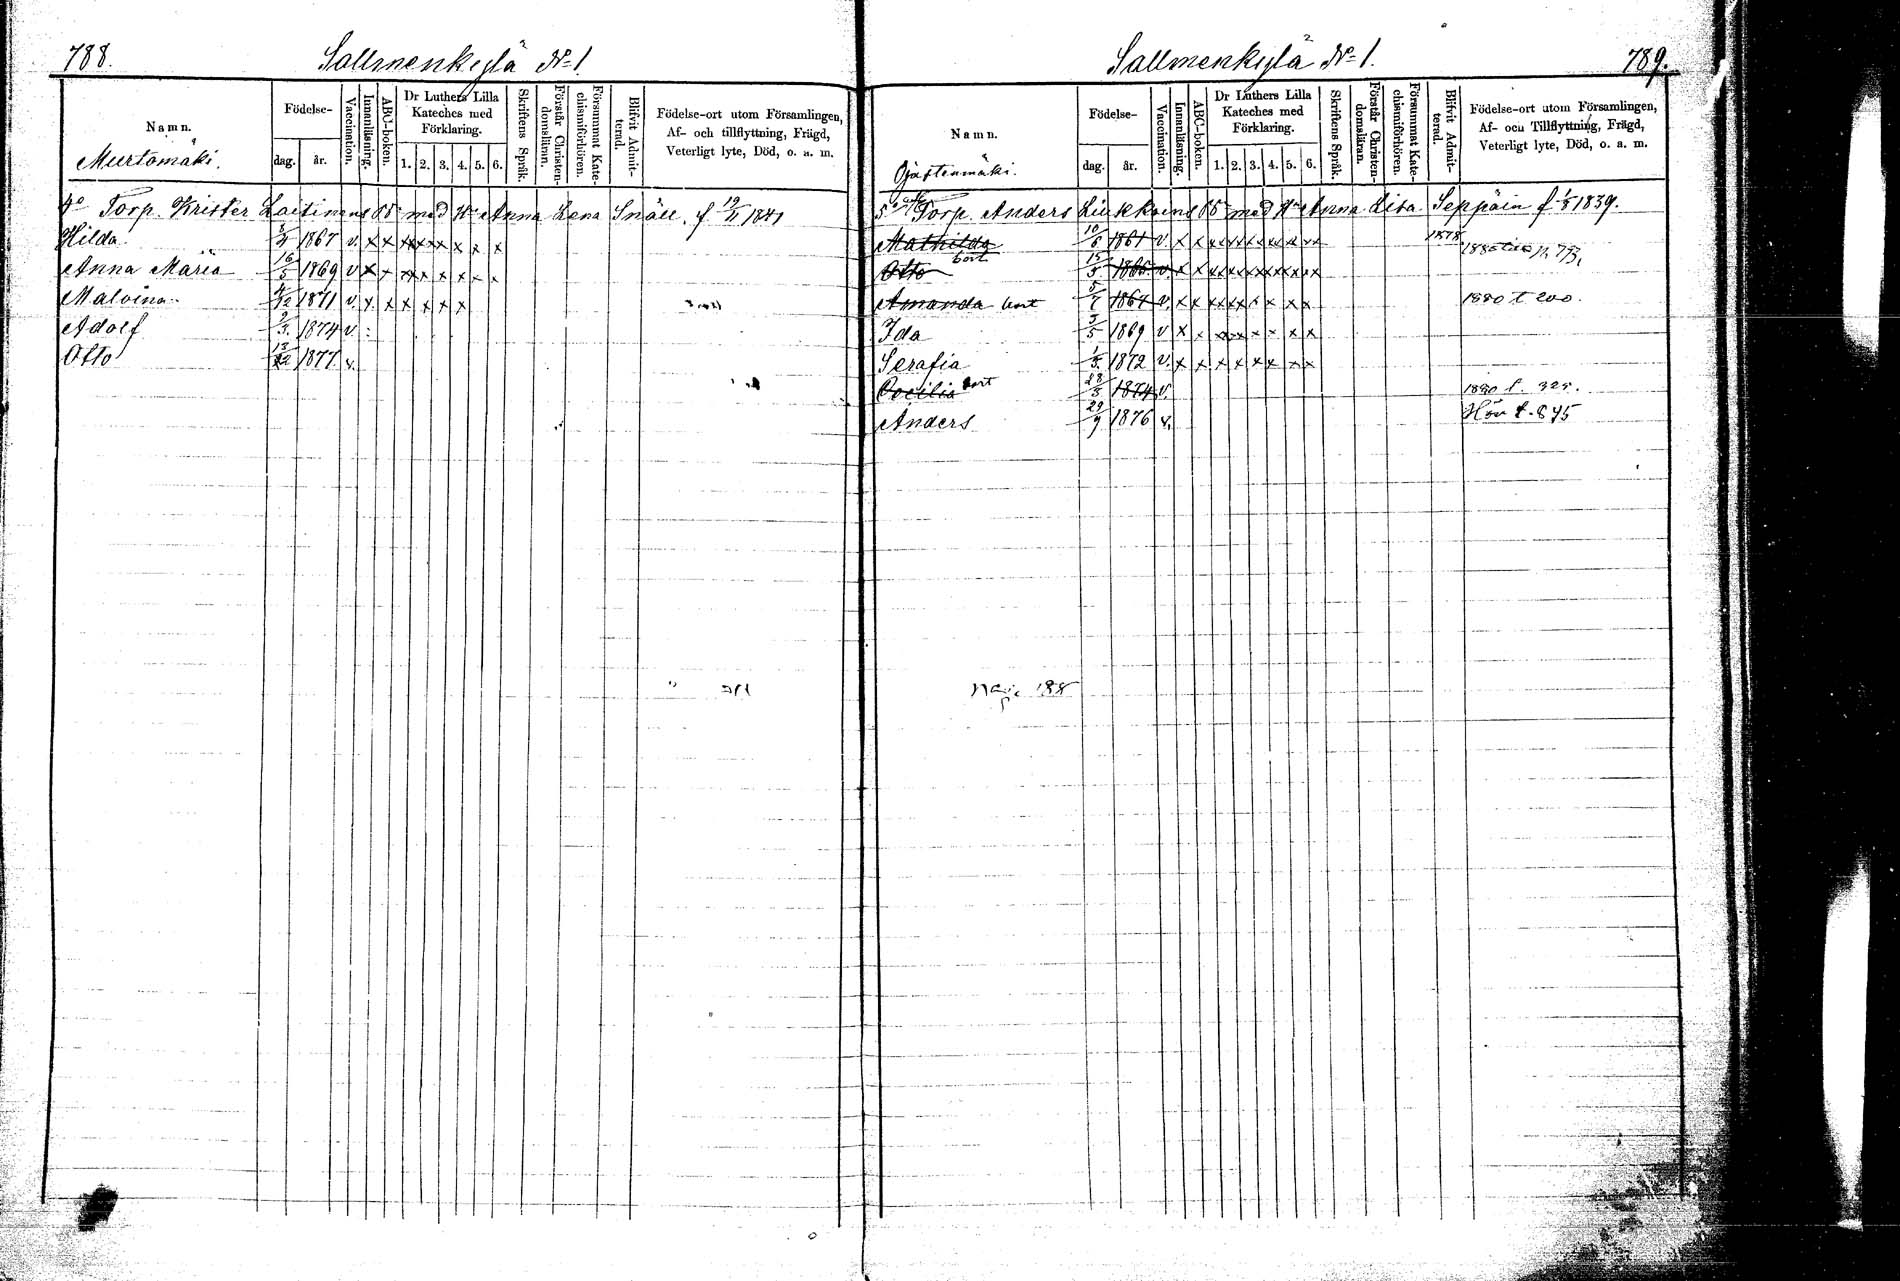 788.
Sallmenkylä № 1.
Namn.
Födelse-
dag.
år.
Vaccination.
Innanläsning.
ABC-boken.
Dr Luthers Lilla
Kateches med
Förklaring.
1. 2. 3. 4. 5. 6.
Skriftens Språk.
Förstår Christen-
domsläran.
Försummat Kate-
chismiförhören.
Blifvit Admit-
terad.
Födelse-ort utom Församlingen,
Af- och tillflyttning, Frägd,
Veterligt lyte, Död, o. a. m.
Murtomäki.
4° Torp. Krister Laitinens med Anna Lena Snäll, f. 19/11 1841
Hilda 1867 v. x x x x x x x x
Anna Maria 16/5 1869 v x x x x x x x x
Malvina 4/12 1871 v. x x x x x x
Adolf 2/3 1874 v.
Otto 13/12 1877 v.
789.
Sallmenkylä № 1.
Namn.
Födelse-
dag.
år.
Vaccination.
Innanläsning.
ABC-boken.
Dr Luthers Lilla
Kateches med
Förklaring.
1. 2. 3. 4. 5. 6.
Skriftens Språk.
Förstår Christen-
domsläran.
Försummat Kate-
chismiförhören.
Blifvit Admit-
terad.
Födelse-ort utom Församlingen,
Af- och Tillflyttning, Frägd,
Veterligt lyte, Död, o. a. m.
Ojastenmäki.
5° Torp. Anders Liukkoins med Anna Lisa Seppäin f. 1839.
Mathilda 10/6 1861 v. x x x x x x x x 1878
Otto bort 15/5 1866 v. x x x x x x x x
Amanda bort 5/7 1864 v. x x x x x x x x 1880 t 200.
Ida 5/5 1869 v x x x x x x x x
Serafia 1/5 1872 v. x x x x x x x x
Cecilia bort 28/5 1874 v. 1880 t. 325.
Anders 29/9 1876 v.